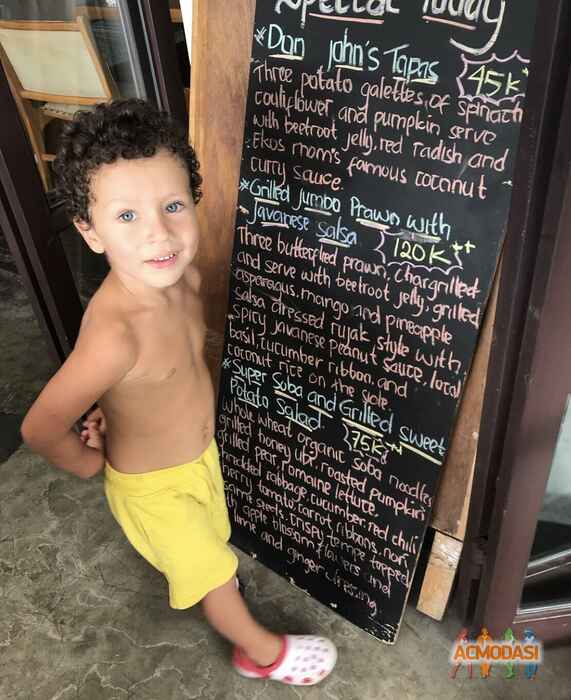 Special Today
*Don John's Tapas 45K
Three potato galettes, of spinach
couliflower and pumpkin serve
with beetroot jelly, red radish and
Ekos mom's famous coconut
curry sauce.
*Grilled Jumbo Prawn with
Javanese Salsa 120K++
Three butterflied prawn, Chargrilled
and serve with beetroot jelly, grilled
asparagus, mango and pineapple
salsa dressed rujak style with
spicy Javanese peanut sauce, local
basil, cucumber ribbon, and
coconut rice on the side.
*Super Soba and Grilled sweet
Potato Salad 75K
whole wheat organic soba noodles
grilled honey ubi, roasted pumpkin
grilled pear, romaine lettuce,
shredded cabbage, cucumber, red chili
cherry tomato, carrot ribbons, nori
seeds, crispy tempe topped
with apple blossom flowers and
lime and ginger dressing
ACMODASI